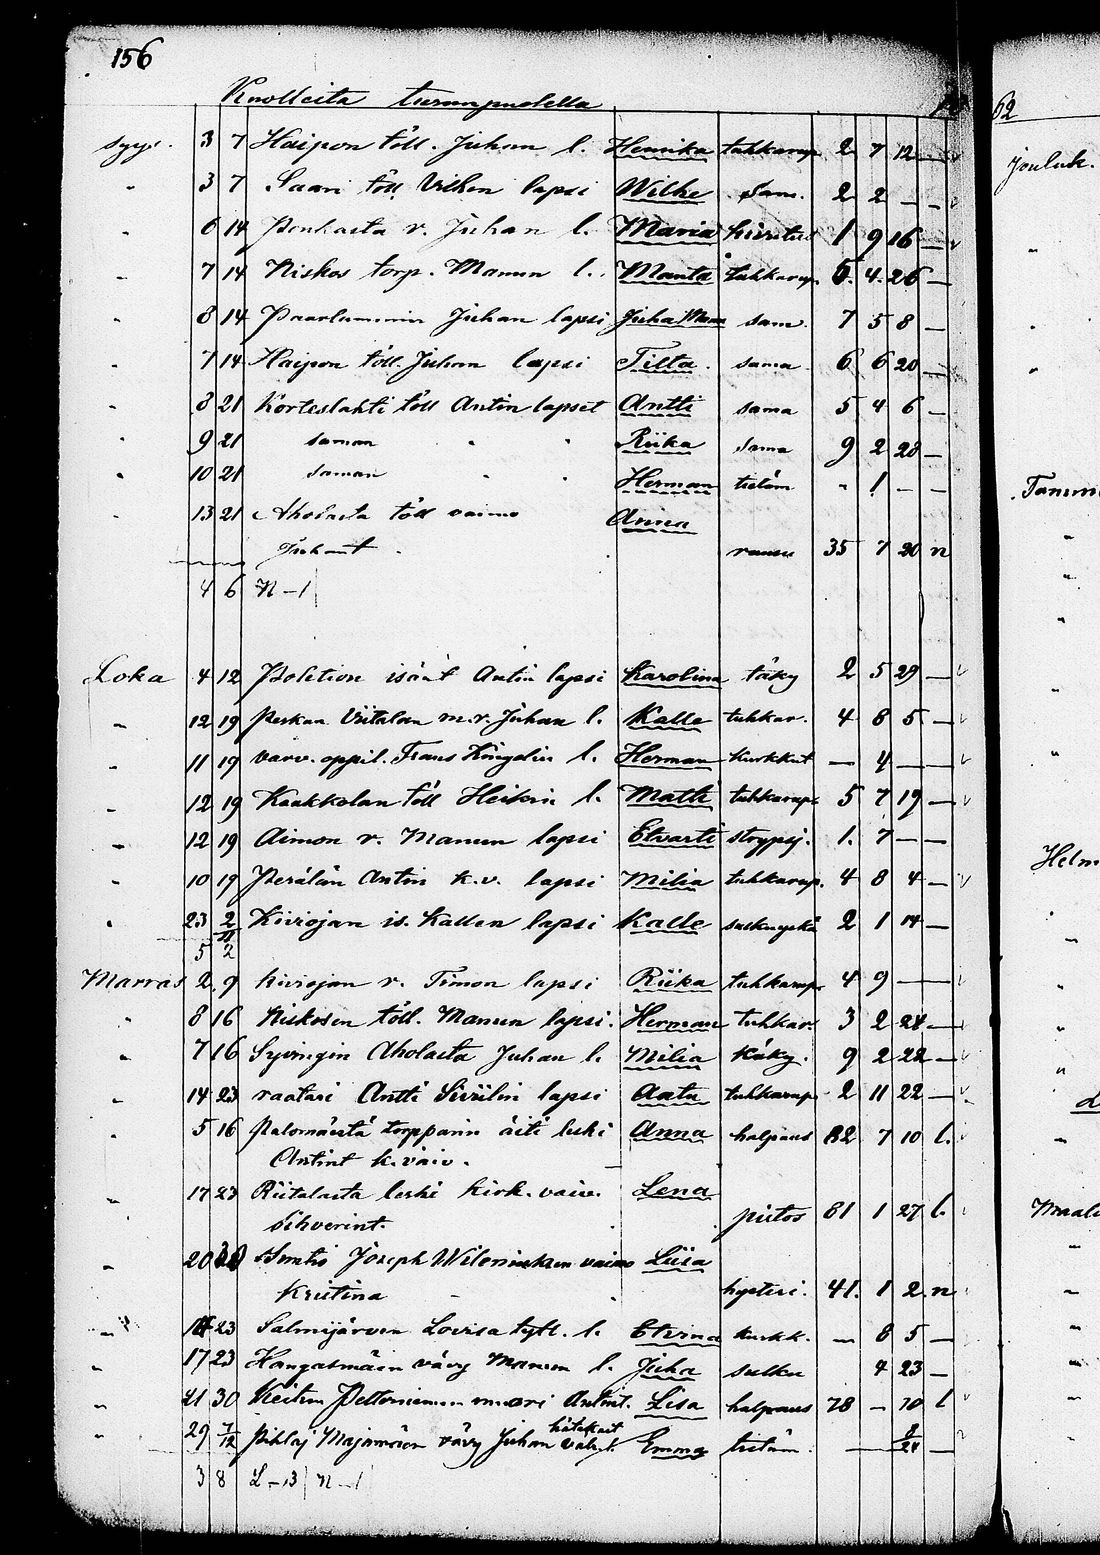 156
Kuolleita turunpuolella
62
syys. 3 7 Haipon töll. Juhan l. Henrika tuhkarup. 2 7 12 —
" 3 7 Saari töll. Vilhen lapsi Wilhe sam. 2 2 — —
" 6 14 v. Juhan l. Maria 1 9 16 —
" 7 14 Niskos torp. Manun l. Manta tuhkarup. 5. 4. 26 —
" 8 14 Juhan lapsi Juha sam. 7 5 8 —
" 7 14 Haipon töll. Juhan lapsi Tilta. sama 6 6 20 —
" 8 21 Korteslahti töll Antin lapset Antti sama 5 4 6 —
" 9 21 saman " " Riika sama 9 2 28 —
" 10 21 saman " " Herman tietöm - 1 — —
" 13 21 Aholasta töll vaimo Anna
35 7 20 n
4 6 N – 1
Loka 4 12 isänt Antin lapsi Karolina täky 2 5 29 —
" 12 19 Viitalan m.v. Juhan l. Kalle tuhkar. 4 8 5 —
" 11 19 varv. oppil. Frans l. Herman kurkkut — 4 — —
" 12 19 Kaakkolan töll Heikin l. Matti tuhkarup. 5 7 19 —
" 12 19 Aimon v. Manun lapsi Etvarti strypsj. 1. 7 — —
" 10 19 Perälän Antin k.v. lapsi Milia tuhkarup. 4 8 4 —
" 23 2/11 Kiviojan is. Kallen lapsi Kalle 2 1 14 —
5 2
Marras 2 9 Kiviojan v. Timon lapsi Riika tuhkarup. 4 9 — —
" 8 16 Niskosen töll. Manun lapsi. Herman tuhkar 3 2 24 —
" 7 16 Syvingin Aholasta Juhan l. Milia käky. 9 2 22 —
" 14 23 raatari Antti lapsi Aata tuhkarup 2 11 22 —
" 5 16 Palomäestä torpparin äiti leski Anna halpaus 82 7 10 l.
Antint k. vaiv.
" 17 23 Riitalasta leski kirk. vaiv. Lena
Sihverint. pistos 81 1 27 l.
" 20 30 Joseph vaimo Liisa
Kristina hysteri. 41. 1 2 n
" 14 23 Salmijärven Lovisa tytt. l. Etvina kurkk. — 8 5 —
" 17 23 Kangasmäen vävy Manun l. Juha sulku 4 23 —
" 21 30 muori Antint. Liisa halpaus 78 – 10 l
" 29 7/12 Pihlaj Majamäen vävy Juhan hätäkast l. Emma tietöm. —
3 8 L – 3 N – 1
Jouluk.
Tammi
Helm
Maali